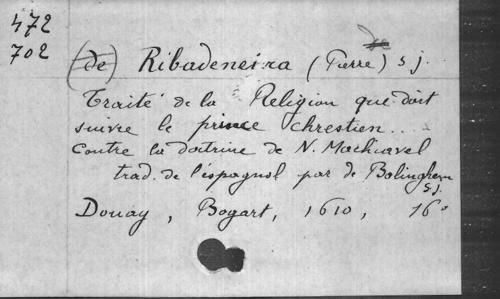 472
702
(de) Ribadeneira (Pierre) s.j.
Traité de la Religion que doit
suivre le prince chrestien...
contre la doctrine de N. Machiavel
trad. de l'espagnol par de Balinghem
s.j.
Douay, Bogart, 1610, 16°